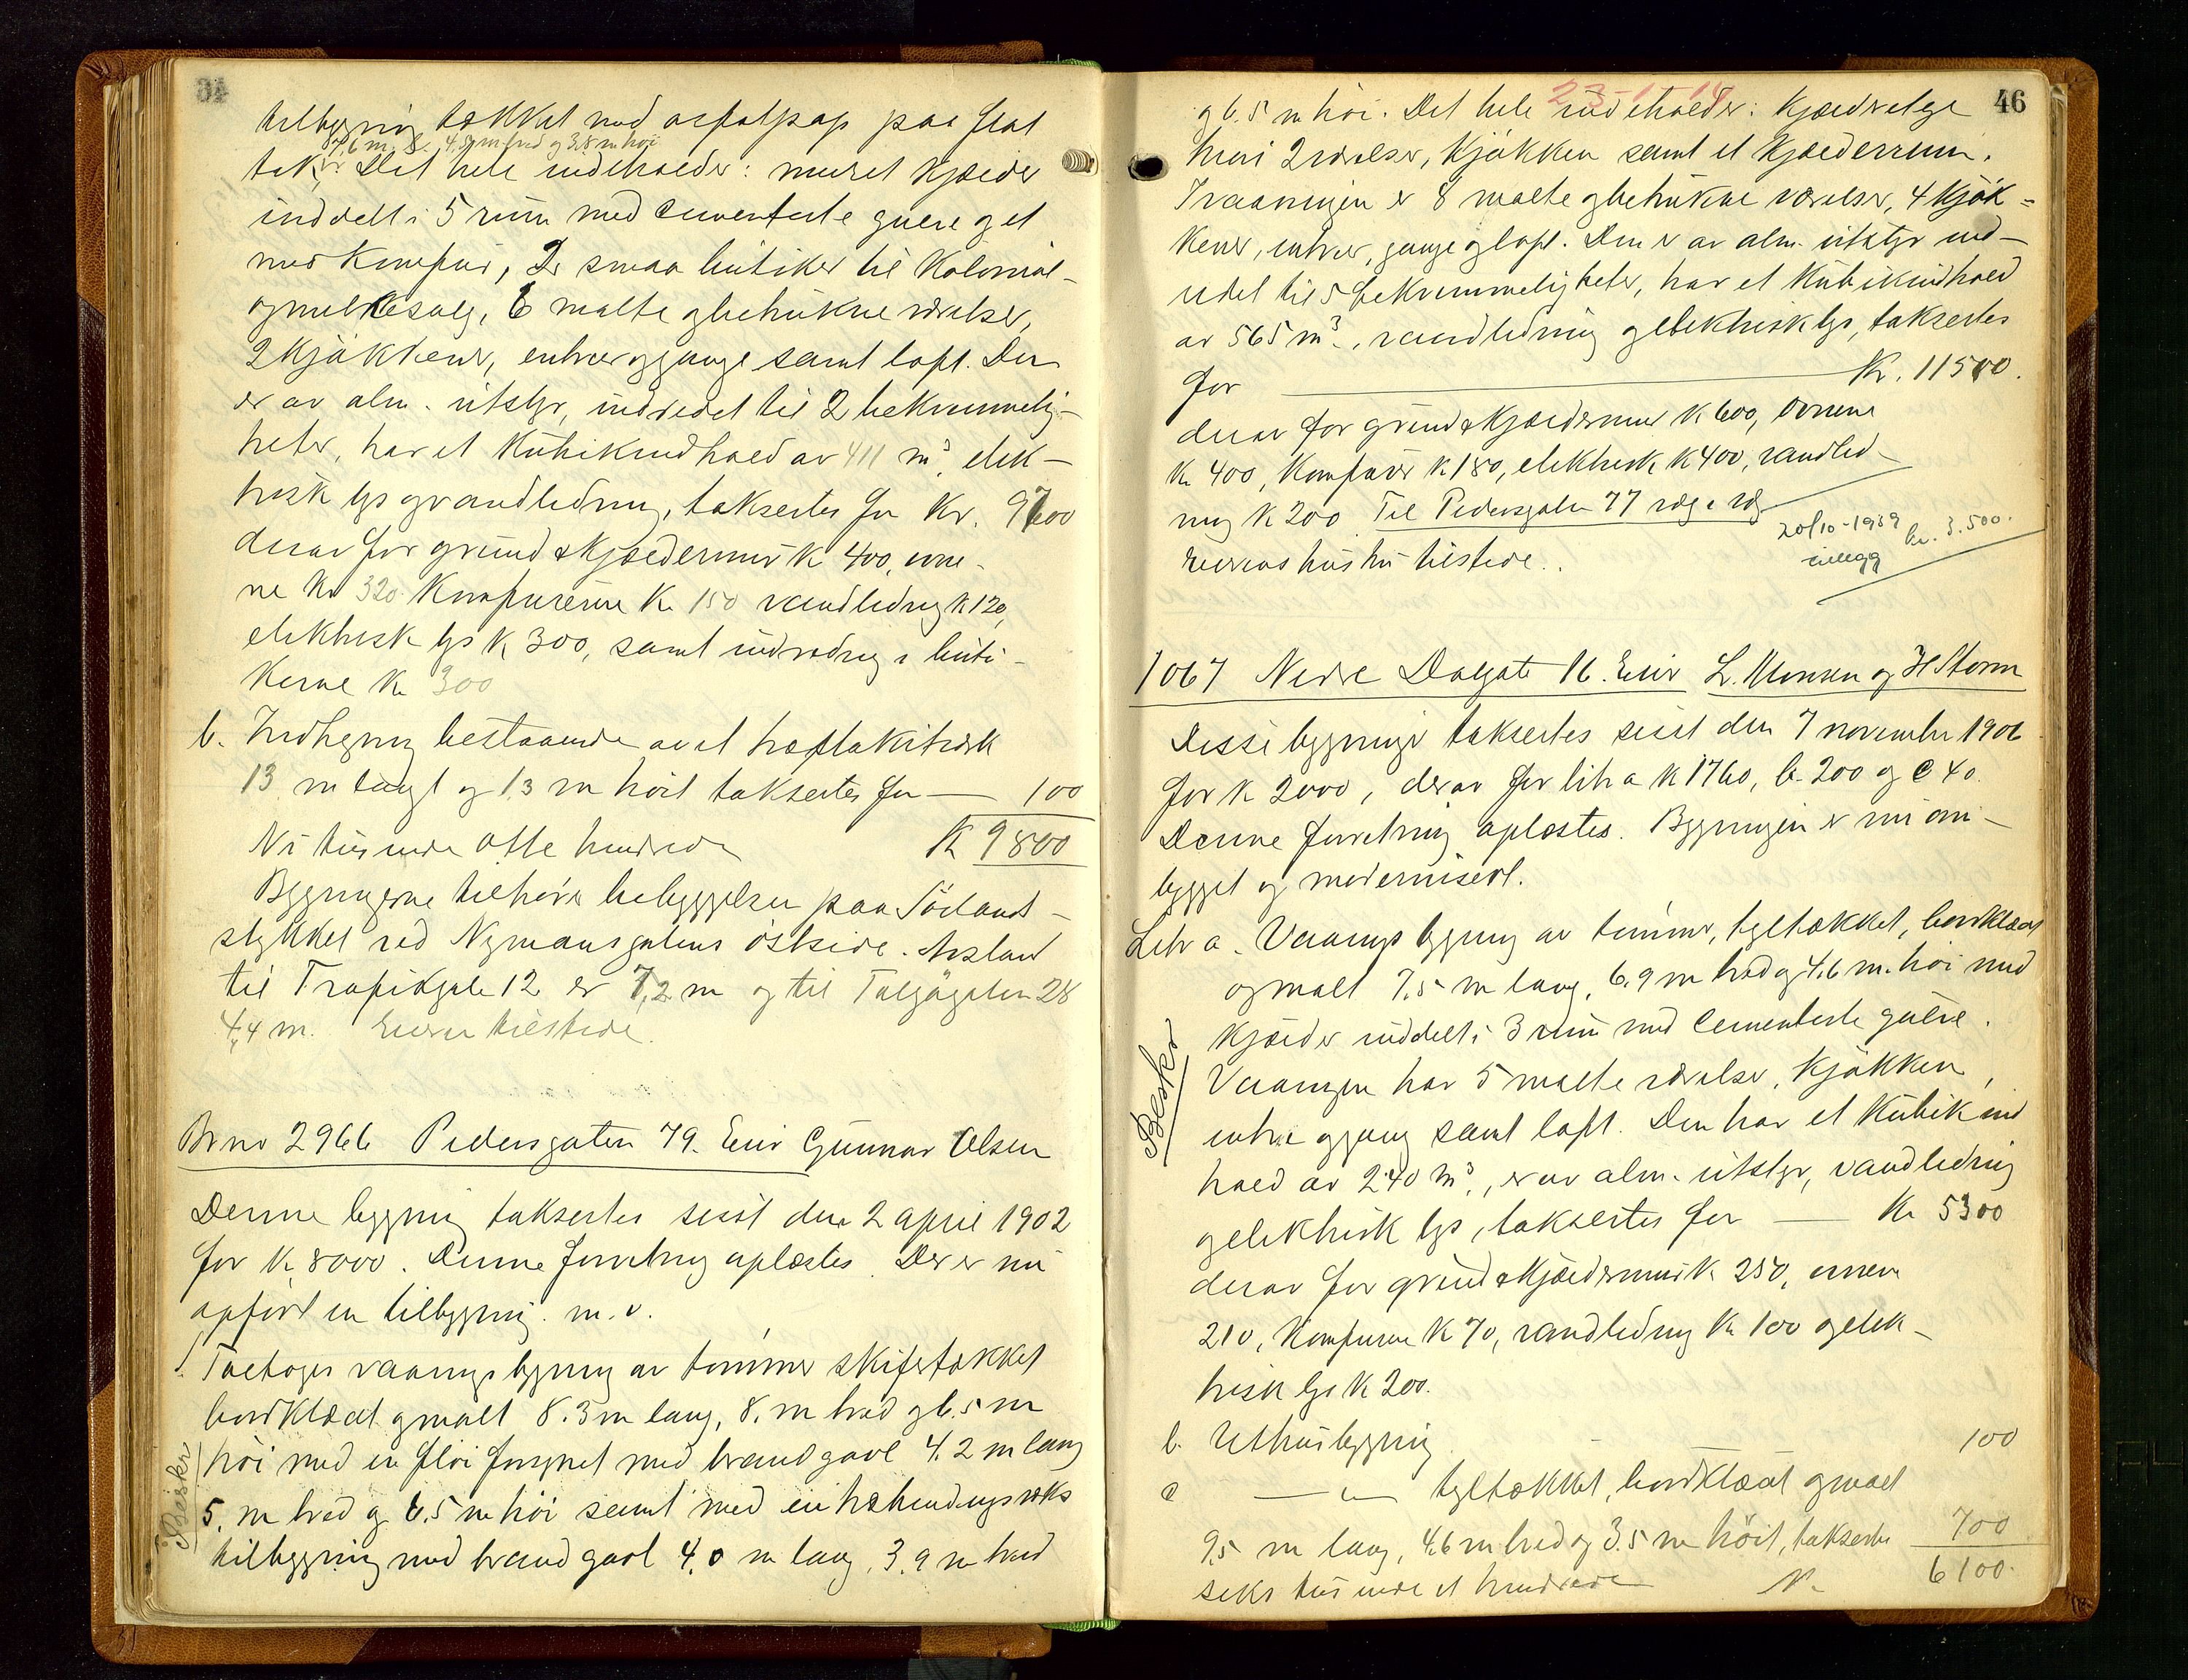 tilbygning tækket med asfaltpap paa flat
7,6 m. l. 4,9 m bred og 3,8 m høi
tak. Det hele indeholder: muret kjælder
inddelt i 5 rum med cementerte gulve og et
med komfur, 2 smaa butiker til kolonial-
og melkesalg, 6 malte og betrukne værelser,
2 kjøkkener, entreer og gange samt loft. Den
er av alm. utstyr, indredet til 2 bekvemmelig-
heter, har et kubikindhold av 411 m³, elek-
trisk lys og vandledning, taksertes for Kr. 9700
derav for grund & kjældermur K 400, ovne-
ne Kr 320 Komfurerne K 150 vandledning K 120,
elektrisk lys K 300, samt indredning i buti-
kerne K 300
b. Indhegning bestaaende av et træstakitværk
13 m langt og 1,3 m høit taksertes for — 100
Ni tusinde otte hundrede K 9800
Bygningerne tilhører bebyggelsen paa Sølands-
stykket ved Nymansgatens østside. Avstand
til Trafikgate 12 er 7,2 m og til Taljøgaten 28
4,4 m. Eieren tilstede.
Br no 2966 Pedersgaten 79. Eier Gunnar Olsen
Denne bygning taksertes sist den 2 april 1902
for K 8000. Denne forretning oplæstes. Der er nu
opført en tilbygning m. v.
Toetages vaaningsbygning av tømmer skifertækket
bordklædt og malt 8.3 m lang, 8. m bred og 6.5 m
høi med en fløi forsynet med brandgavl 4.2 m lang
Beskr
5. m bred og 6.5 m høi samt med en
tilbygning med brandgavl 4,0 m lang, 3,9 m bred
46
og 6.5 m høi. Det hele indeholder: kjælderetage
hvori 2 værelser, kjøkken samt et kjælderrum.
I vaaningen er 8 malte og betrukne værelser, 4 kjøk-
kener, entreer, gange og loft. Den er av alm. utstyr ind-
redet til 5 bekvemmeligheter, har et kubikindhold
av 565 m³, vandledning og elektrisk lys, taksertes
for — Kr. 11500.
derav for grund & kjældermur K 600, ovnene
K 400, Komfurer K 180, elektrisk K 400, vandled-
ning K 200 Til Pedersgaten 77 væg i væg
20/10-1939 kr. 3.500.
tillegg
Eierens hustru tilstede..
1067 Nedre Dalgate 16. Eier L. Monsen og H Storm
Disse bygninger taksertes sist den 7 november 1906
for K 2000, derav for litr a K 1760, b. 200 og c 40.
Denne forretning oplæstes. Bygningen er nu om-
bygget og modernisert.
Litr a. Vaaningsbygning av tømmer, tegltækket, bordklædt
og malt 7.5 m lang, 6.9 m bred og 4.6 m. høi med
kjælder inddelt i 3 rum med cementerte gulve.
Beskr
Vaaningen har 5 malte værelser, kjøkken,
entre og gang samt loft. Den har et kubikind
hold av 240 m³, er av alm. utstyr, vandledning
og elektrisk lys, taksertes for — Kr 5300
derav for grund & kjældermur K 250, ovnene
210, Komfurene K 70, vandledning K 100 og elek-
trisk lys K 200.
b. Uthusbygning 100
c — " — tegltækket, bordklædt og malt
9,5 m lang, 4.6 m bred og 3.5 m høit, taksertes 700
seks tusinde et hundrede K 6100.